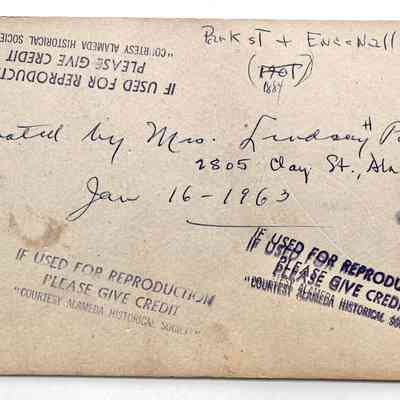 Park st + Encinall
(1901)
1884
"COURTESY ALAMEDA HISTORICAL SOCIE
PLEASE GIVE CREDIT
IF USED FOR REPRODUC
ated by Mrs. Lindsay
2805 Clay St., Ala
Jan 16-1963
IF USED FOR REPRODUCTION
PLEASE GIVE CREDIT
"COURTESY ALAMEDA HISTORICAL SOCIETY"
IF USED FOR REPRODU
PLEASE GIVE CREDI
"COURTESY ALAMEDA HISTORICAL SOC